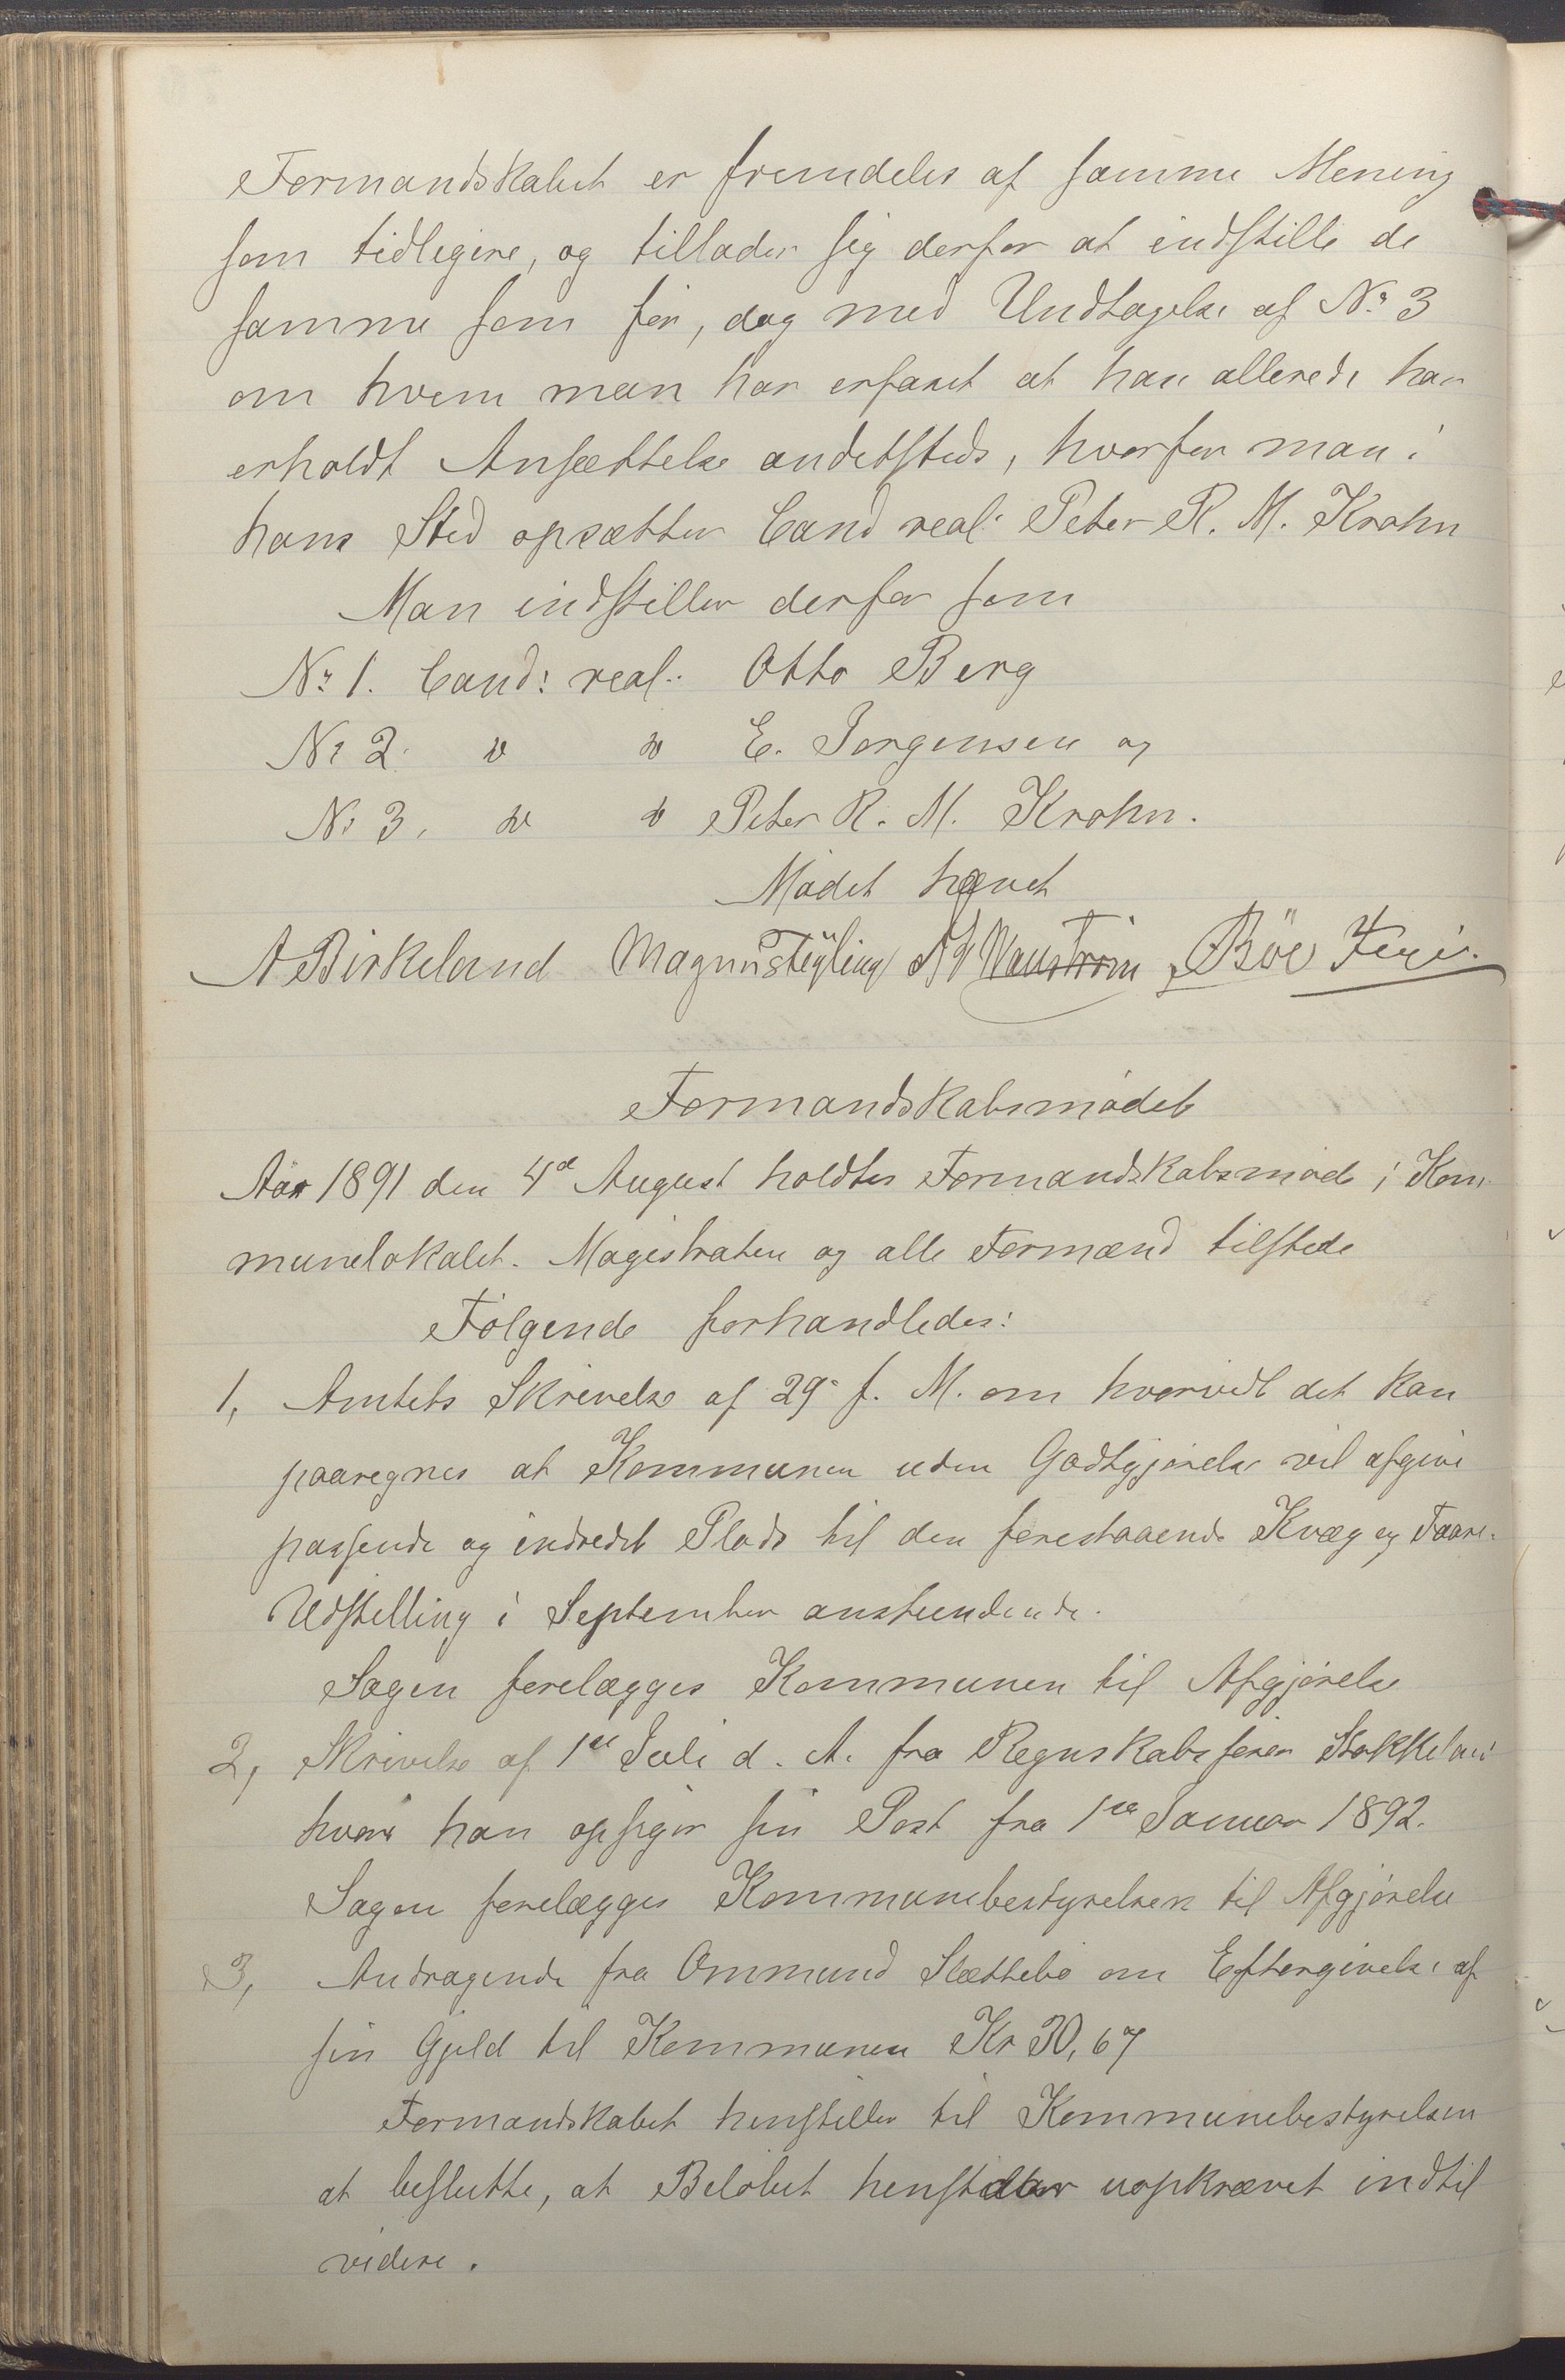 Formandskabet er fremdeles af samme Mening
som tidligere, og tillader sig derfor at indstille de
samme som før, dog med Undtagelse af No 3
om hvem man har erfaret at han allerede har
erholdt Ansættelse andetsteds, hvorfor man i
hans Sted opsætter Cand real: Peter R. M. Krohn
Man indstiller derfor som
No 1. Cand: real: Otto Berg
No 2. " " E. Jørgensen og
No 3, " " Peter R. M. Krohn.
Mødet hævet
A Birkeland Magnus Bøe
Formandskabsmødet
Aar 1891 den 4d August holdtes Formandskabsmøde i Kom-
munelokalet. Magistraten og alle Formænd tilstede
Følgende forhandledes:
1, Amtets Skrivelse af 29. f. M. om hvorvidt det kan
paaregnes at Kommunen uden Godtgjørelse vil afgive
passende og indredet Plads til den forestaaende Kvæg og Faare-
Udstilling i September anstundende.
Sagen forelægges Kommunen til Afgjørelse
2, Skrivelse af 1ste Juli d. A. fra Regnskabsfører Stokkeland
hvori han opsiger sin Post fra 1ste Januar 1892.
Sagen forelægges Kommunebestyrelsen til Afgjørelse
3, Andragende fra Ommund Slettebø om Eftergivelse af
sin Gjeld til Kommunen Kr 30,67
Formandskabet henstiller til Kommunebestyrelsen
at beslutte, at Beløbet henstaar uopkrævet indtil
videre.